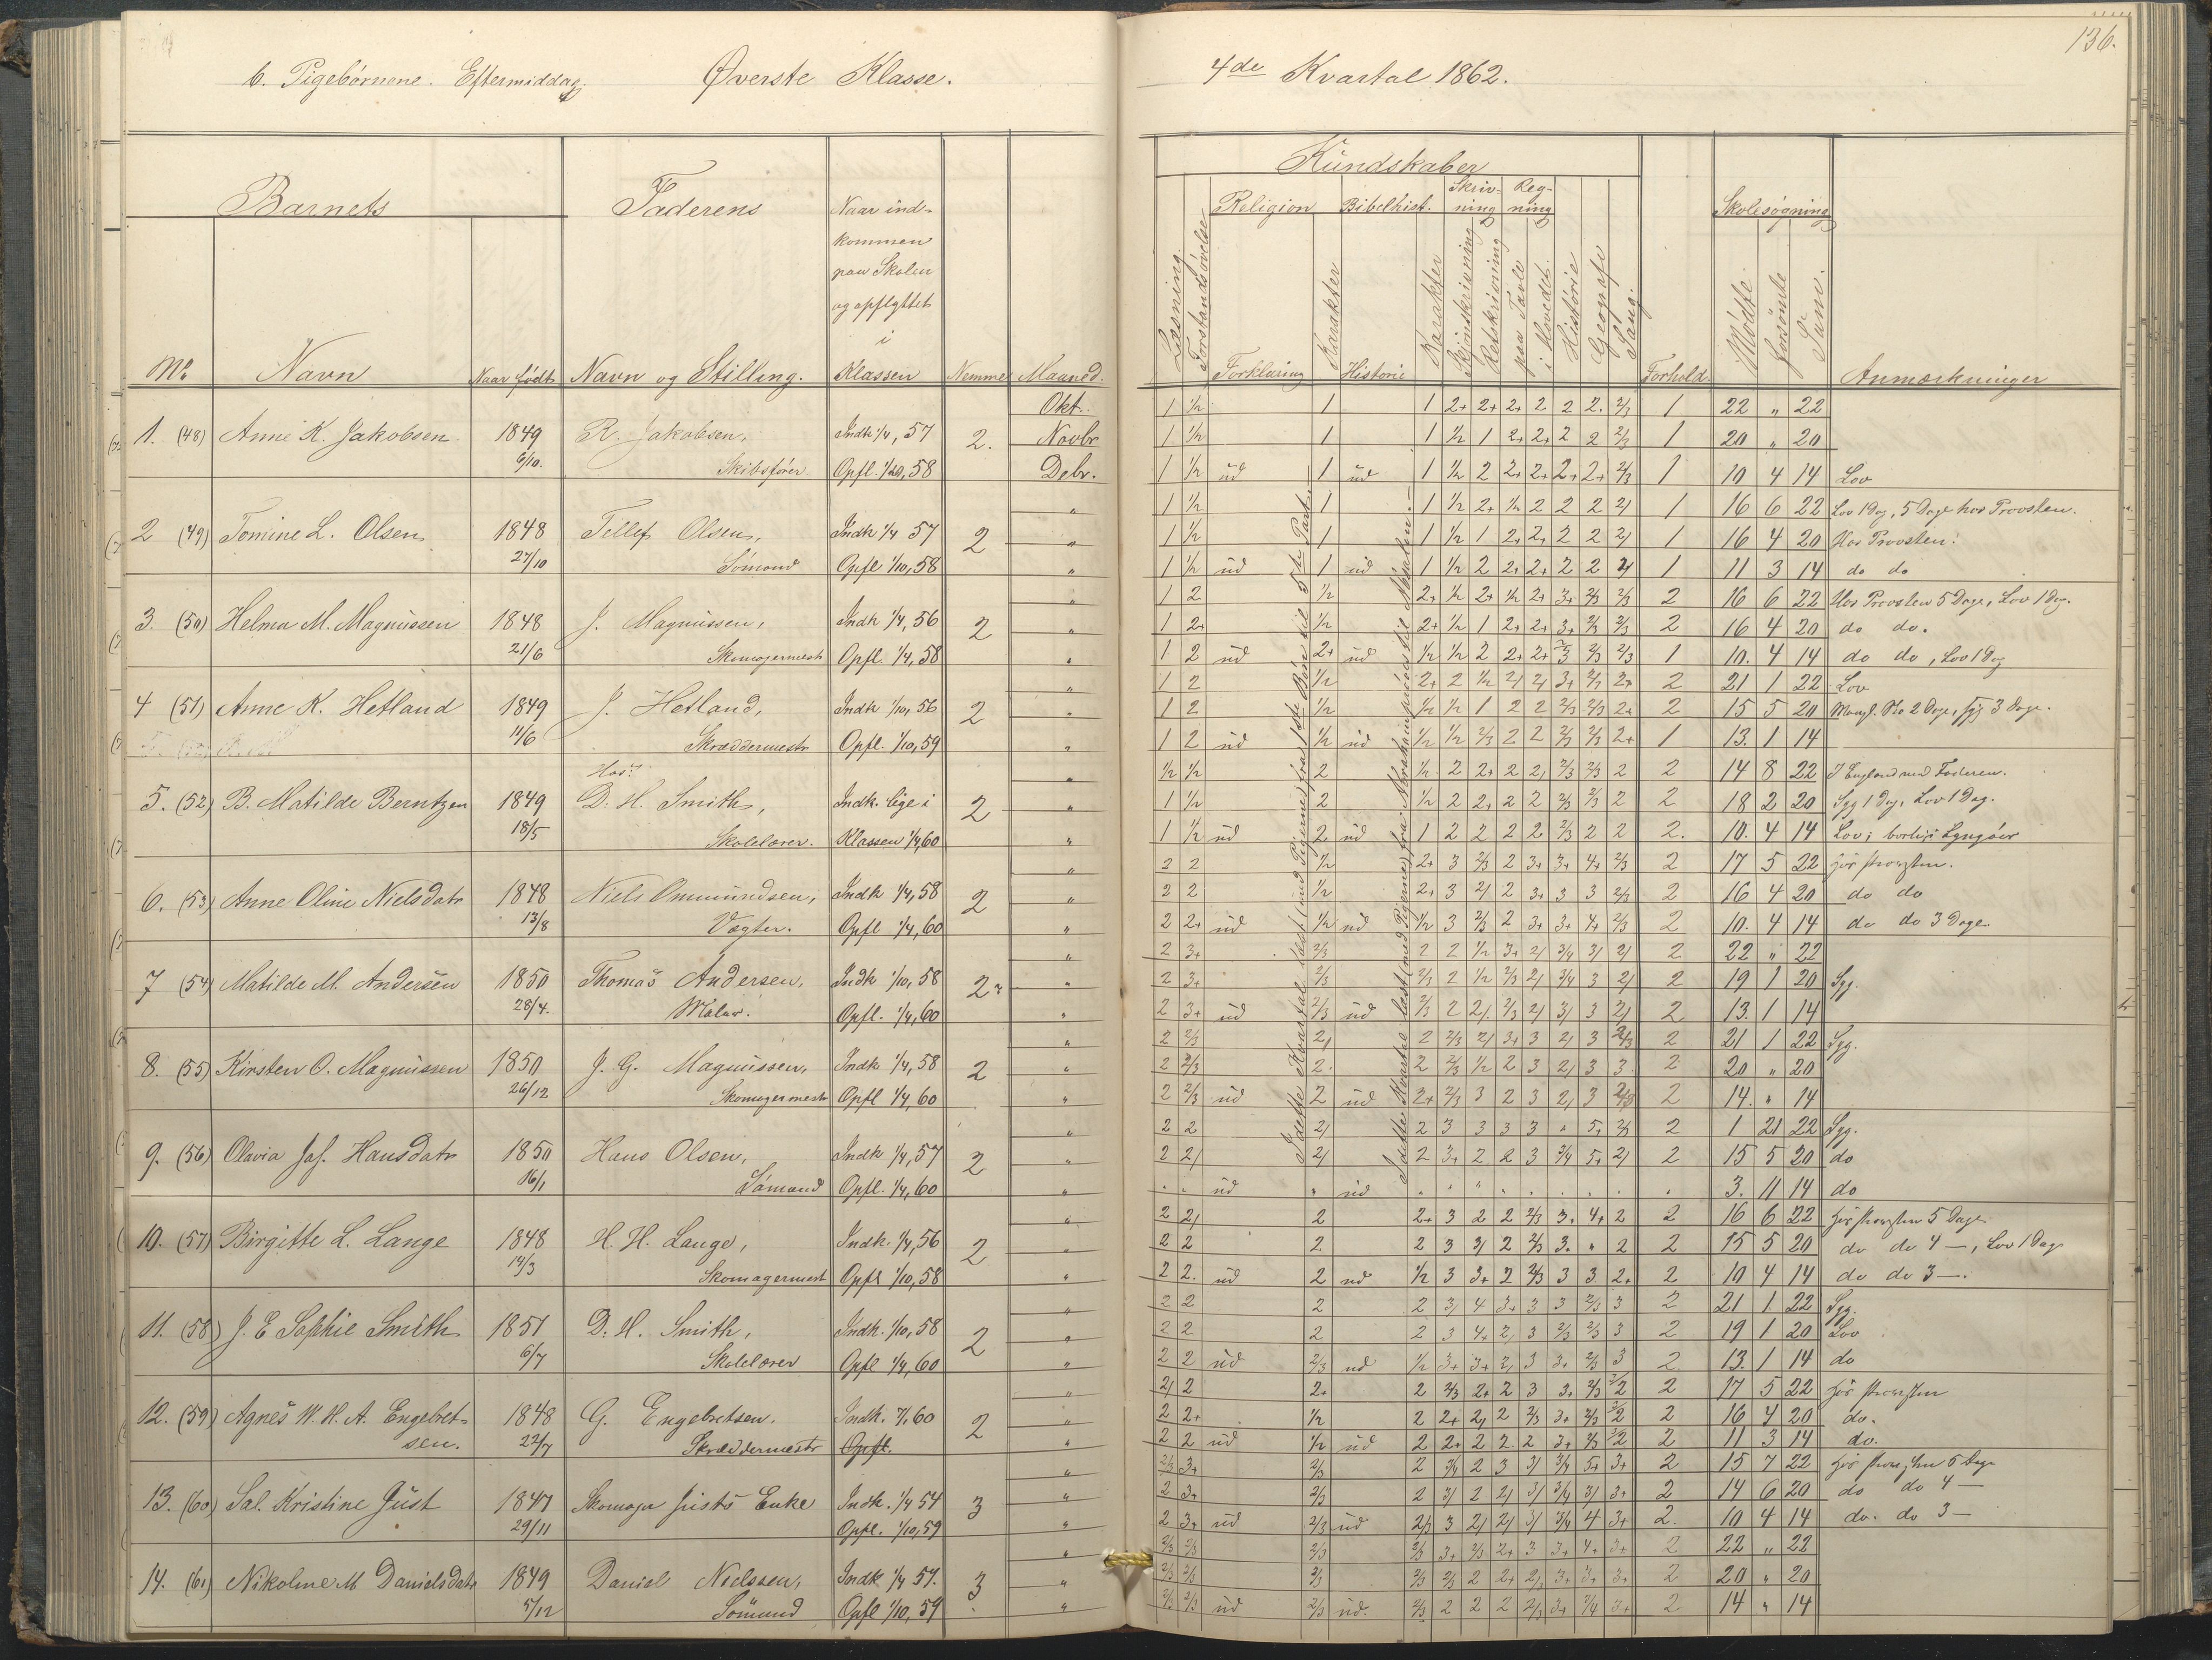 136.
b. Pigebørnene. Eftermiddag. Øverste Klasse.
4de Kvartal 1862.
Barnets Faderens Naar ind-
kommen
paa Skolen
og opflyttet
i
No Navn Naar født Navn og Stilling. Klassen Nemme Maaned.
Kundskaber
Religion Bibelhist. Skriv-ning Reg-ning Skolesøgning
Læsning. Forstandsøvelse Forklaring Karakter Historie Karakter Skjønskrivning Retskrivning paa Tavle i Hovedet. Historie Geografi Sang. Forhold. Mødte Forsømte Sum. Anmærkninger
Okt.
1. (48) Anne K. Jakobsen 1849 R. Jakobsen, Indk 1/4, 57 2. Novbr
6/10. Skibsfører Opfl. 1/10, 58 Debr.
2 (49) Tomine L. Olsen 1848 Tellef Olsen, Indk 1/4 57 2 "
27/10 Sømand Opfl 1/10, 58 "
3. (50) Helma M. Magnussen 1848 J. Magnussen, Indk 1/4, 56 2 "
21/6 Skomagermestr Opfl. 1/4, 58 "
4 (51) Anne K. Hetland 1849 J. Hetland, Indk 1/10, 56 2 "
11/6 Skræddermestr Opfl. 1/10, 59 "
Hos:
5. (52) B. Matilde Berntzen 1849 D. H. Smith, Indk. lige i 2 "
18/5 Skolelærer. Klassen 1/4, 60 "
6. (53) Anne Oline Nielsdatr 1848 Niels Ommundsen, Indk 1/4, 58 2 "
13/8 Vægter. Opfl 1/4, 60 "
7 (54) Matilde M. Andersen 1850 Thomas Andersen, Indk 1/10, 58 2 "
28/4. Maler. Opfl. 1/4, 60 "
8. (55) Kirsten O. Magnussen 1850 J. G. Magnussen, Indk 1/4, 58 2 "
26/12 Skomagermestr Opfl 1/4, 60 "
9. (56) Olavia Jos. Hansdatr 1850 Hans Olsen, Indk 1/4, 57 2 "
16/1 Sømand Opfl. 1/4, 60 "
10. (57) Birgitte L. Lange 1848 H. H. Lange, Indk. 1/4, 56 2 "
14/3 Skomagermest Opfl 1/10, 58 "
11. (58) J. E Sophie Smith 1851 D. H. Smith, Indk. 1/10, 58 2 "
6/7 Skolelærer Opfl 1/4, 60 "
12. (59) Agnes W. H. A. Engebret- 1848 G. Engebretsen. Indk. 60 2 "
sen. 22/7 Skræddermestr Opfl. "
13. (60) Sal. Kristine Just 1847 Skomager Justs Enke Indk. 1/4 54 3 "
29/11 Opfl. 1/10, 59 "
14. (61) Nikoline M Danielsdatr 1849 Daniel Nielssen, Indk 1/4 57. 3 "
5/12 Sømand Opfl 1/10, 59 "
I dette Kvartal læst
I dette Kvartal læst
1 1/2 1 1 2+ 2+ 2+ 2 2 2. 2/3 1 22 " 22
1 1/2 1 1 1/2 1 2+ 2+ 2 2 2/3 1 20 " 20
1 1/2 ud 1 ud 1 1/2 2 2+ 2+ 2+ 2+ 2/3 1 10 4 14 Lov
1 1/2 1 1 1/2 2+ 1/2 2 2 2 1 16 6 22 Lov 1 Dag, 5 Dage hos Provsten.
1 1/2 1 1 1/2 1 2 2 2 1 16 4 20 Hos Provsten.
1 1/2 ud 1 ud 1 1/2 2 2+ 2+ 2 2 1 11 3 14 do do
1 2 1/2 2+ 1/2 2+ 1/2 2+ 3+ 2/3 2/3 2 16 6 22 Hos Provsten 5 Dage, Lov 1 Dag.
1 2+ 1/2 2+ 1/2 1 2+ 2+ 3+ 2/3 2/3 2 16 4 20 do do.
1 2 ud 2+ ud 1/2 1/2 2 2+ 2+ 2/3 2/3 1 10. 4 14 do do, Lov 1 Dag
1 2 1/2 2+ 2 1/2 3+ 2/3 2+ 2 21 1 22 Lov
1 2 1/2 1/2 1/2 1 2 2 2/3 2/3 2+ 2 15 5 20 2 Dage, syg 3 Dage.
1 2 ud 1/2 ud 1/2 1/2 2/3 2 2 2/3 2/3 2+ 1 13. 1 14
1/2 1/2 2 1/2 2 2+ 2 2/3 2/3 2 2 14 8 22 I England med Faderen.
1 1/2 2 1/2 2 2+ 2 2 2/3 2/3 2 2 18 2 20 Syg 1 Dag, Lov 1 Dag.
1 1/2 ud 2 ud 1 2 2 2 2 2/3 2 2 2. 10. 4 14 Lov; borte i Lyngøer
2 2 1/2 2+ 3 2/3 2 3+ 3+ 4+ 2/3 2 17 5 22 hos Provsten.
2 2 1/2 2+ 3 2 3+ 3 3 2/3 2 16 4 20 do do
2 2+ ud 1/2 ud 1/2 3 2/3 2 3+ 3+ 4+ 2/3 2 10. 4 14 do do 3 Dage
2 3+ 2/3 2 2 1/2 3+ 3/4 2 22 " 22
2 3+ 2/3 2/3 2 1/2 2/3 3/4 3 2 19 1 20 Syg.
2 3+ ud 2/3 ud 2/3 2 2/3 3 2 13. 1 14
2 2/3 2 2/3 3+ 3 3 2/3 2 21 1 22 Syg.
2 2/3 2. 2 2/3 1/2 2 3 3 3 2 20 " 20
2 2/3 ud 2 ud 2+ 2/3 3 2 3 3 2/3 2 14. " 14
2 2 2 3 3 3 3 " 5+ 2 1 21 22 Syg.
2 2 3+ 2 2 3 3/4 5+ 2 15 5 20 do
" " ud " ud " " " " " " " " " 3. 11 14 do
2 2 2+ 3 2 2 2/3 3. 4+ 2 2 16 6 22 hos Provsten 5 Dage
2 2 2 2 3 2 2/3 3. " 2 2 15 5 20 do do 4 —, Lov 1 Dag
2 2. ud 2 ud 1/2 3 3+ 2 2/3 3 3 2+ 2 10 4 14 do do 3 —.
2 2 2 2 4 3+ 3 3 2/3 3 2 21 1 22 Syg.
2 2 2 2 3 4+ 3 2/3 2/3 3 2 19 1 20 Lov
2 2 ud 2/3 ud 1/2 3+ 3+ 3 3+ 2/3 3 2 13. 1 14 do
2 2+ 2 2/3 2+ 2 3 3+ 2/3 2 17 5 22 hos Provsten
2 2+ 1/2 2 2+ 2 2/3 3+ 2/3 2 16 4 20 do.
2 2 ud 1/2 ud 2 2+ 2 2 2 3+ 2 11 3 14 do.
2/3 3+ 2/3 2 3/4 2 3 3/4 5+ 3+ 2 15 7 22 hos Provsten 5 Dage
2 3+ 2/3 2 2 3/4 3+ 2 14 6 20 do do 4 —
2 3+ ud 2/3 ud 3 3/4 4 3+ 2. 10 4 14 do. do 3 —
2/3 2/3 2/3 2/3 3+ 2/3 2+ 3 3+ 4+ 3+ 2 22 " 22
2/3 2/3 2/3 2/3 2/3 2 2+ 3+ 3+ 3+ 2 20 " 20
2/3 2/3 ud 2/3 ud. 2/3 2 2 2 2/3 3+ 3/4 3+ 2 14 " 14